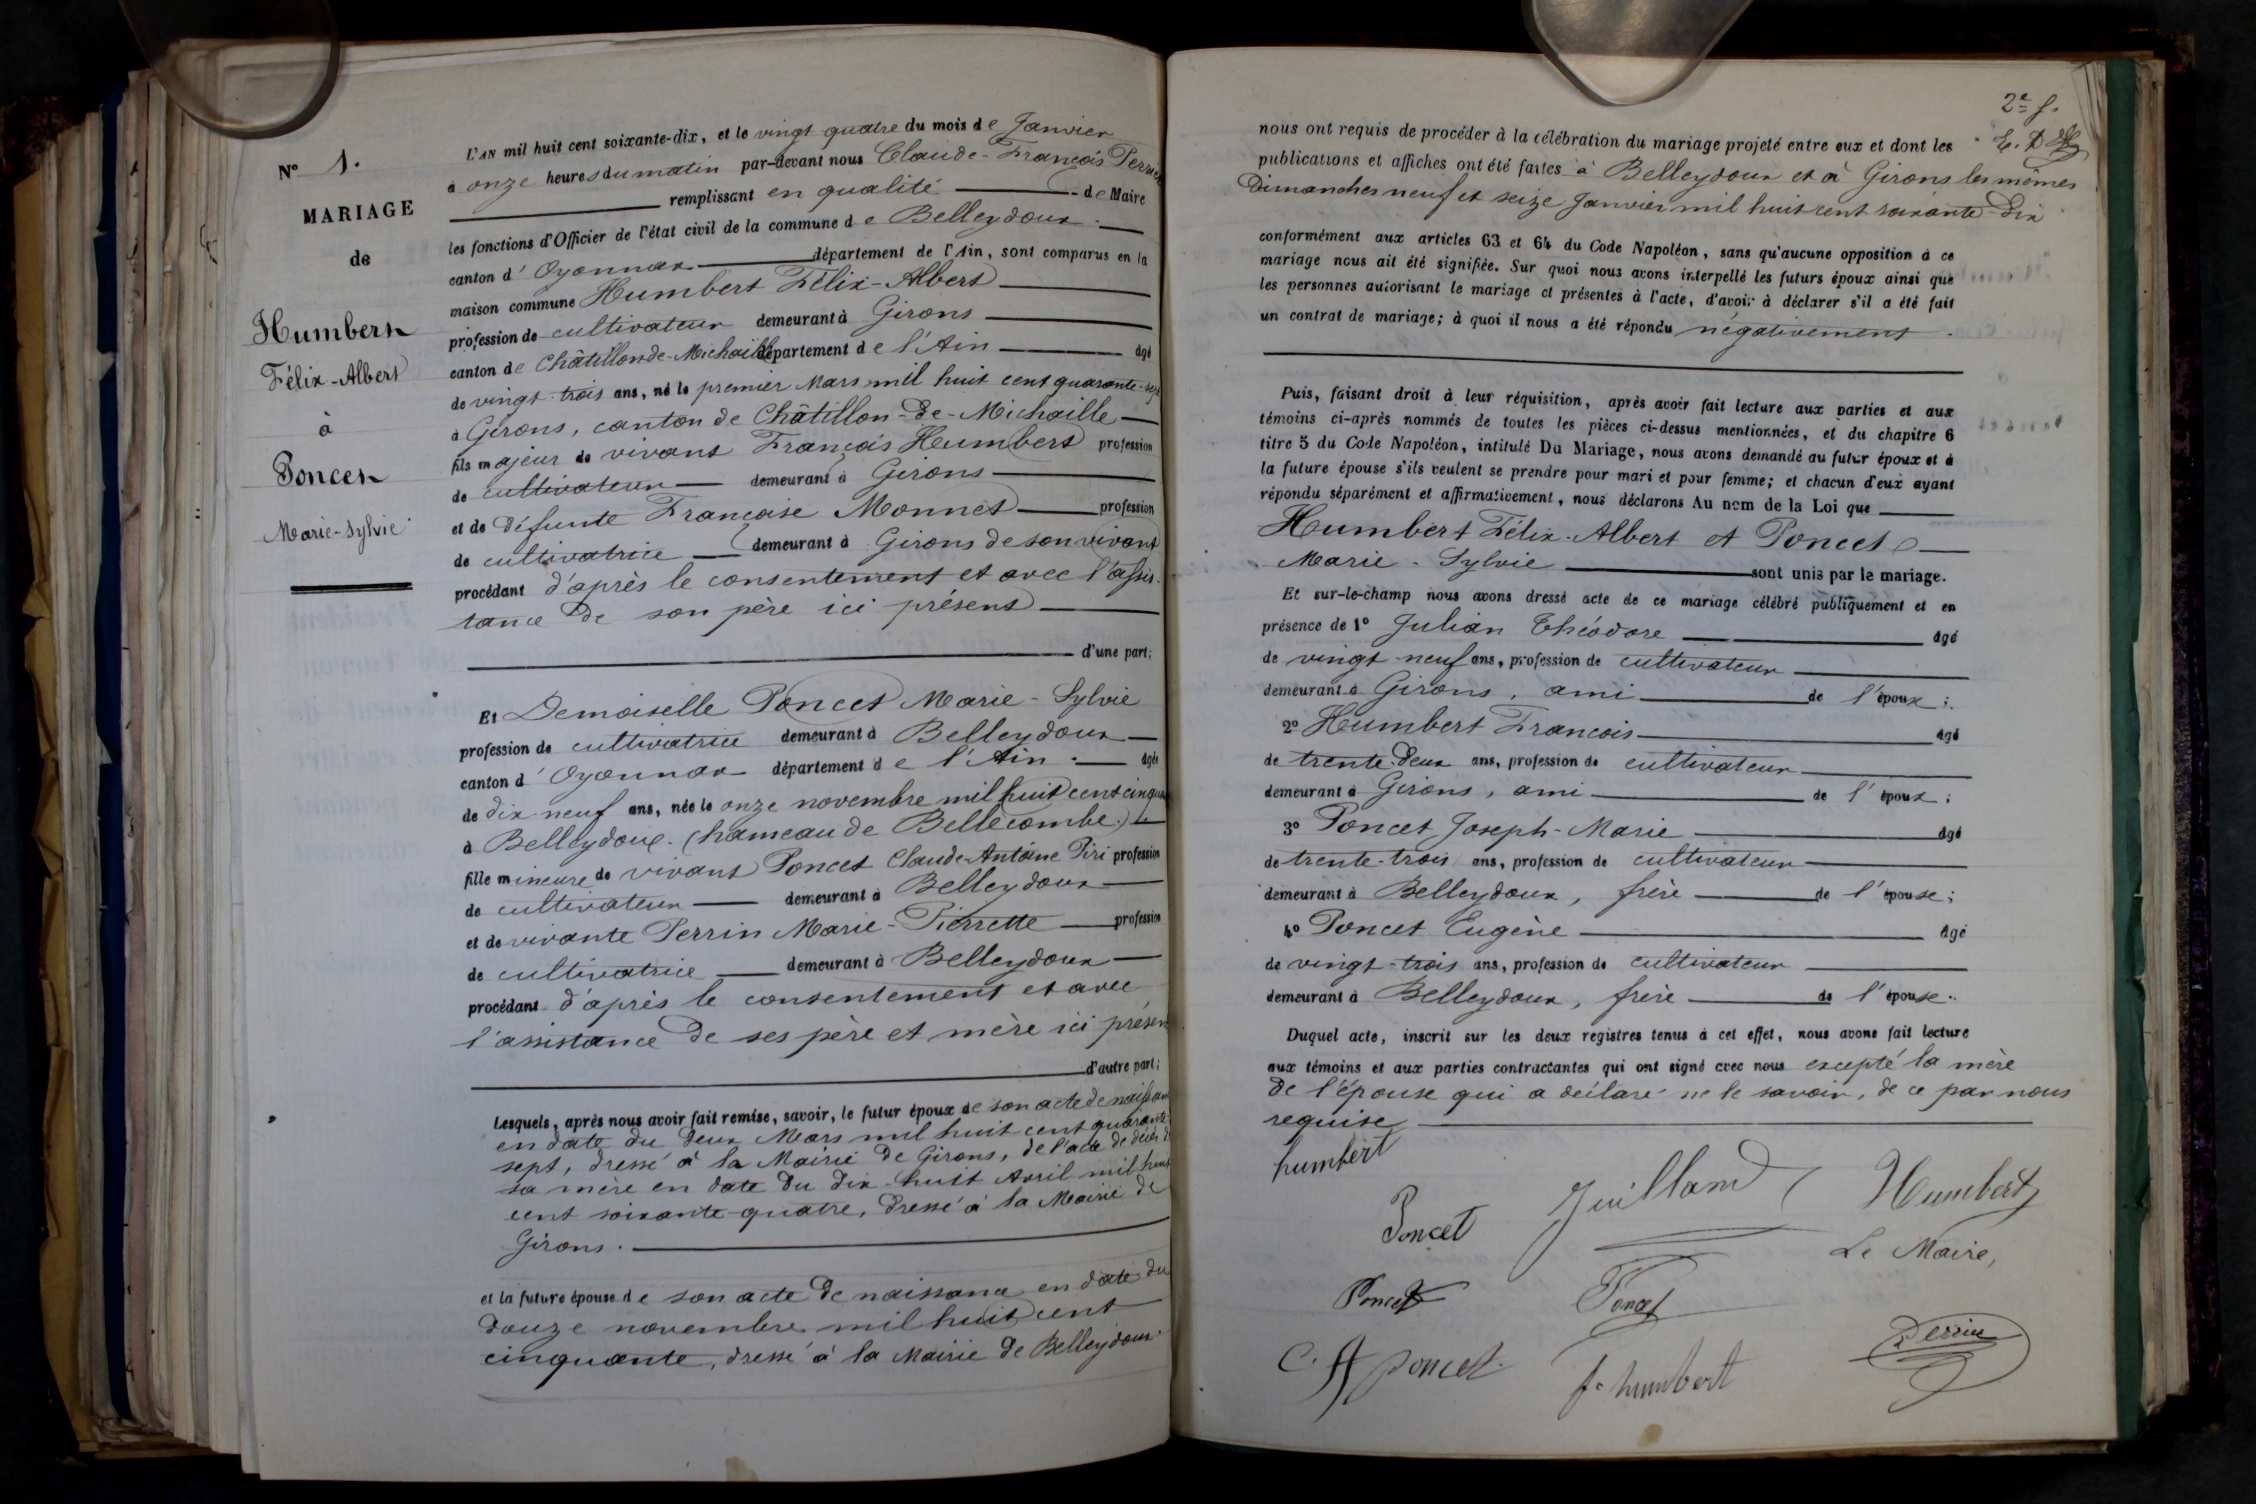 N° 1.
MARIAGE
de
Humbert
Félix-Albert
à
Poncet
Marie-Sylvie
L'AN mil huit cent soixante-dix, et le vingt quatre du mois de Janvier
à onze heures du matin par-devant nous Claude-François Perrin
remplissant en qualité de Maire
les fonctions d'Officier de l'état civil de la commune de Belleydoux
canton d'Oyonnax département de l'Ain, sont comparus en la
maison commune Humbert Félix-Albert
profession de cultivateur demeurant à Girons
canton de Châtillon-de-Michaille département de l'Ain âgé
de vingt-trois ans, né le premier Mars mil huit cent quarante-sept
à Girons, canton de Châtillon-de-Michaille
fils majeur de vivant François Humbert profession
de cultivateur demeurant à Girons
et de défunte Françoise Monnet profession
de cultivatrice demeurant à Girons de son vivant
procédant d'après le consentement et avec l'assis-
tance de son père ici présent
d'une part;
Et Demoiselle Poncet Marie-Sylvie
profession de cultivatrice demeurant à Belleydoux
canton d'Oyonnax département de l'Ain âgée
de dix neuf ans, née le onze novembre mil huit cent cinquante
à Belleydoux (hameau de Bellecombe)
fille mineure de vivant Poncet Claude-Antoine Piri profession
de cultivateur demeurant à Belleydoux
et de vivante Perrin Marie-Pierrette profession
de cultivatrice demeurant à Belleydoux
procédant d'après le consentement et avec
l'assistance de ses père et mère ici présen
d'autre part;
Lesquels, après nous avoir fait remise, savoir, le futur époux de son acte de naissance
en date du deux Mars mil huit cent quarante
sept, dressé à la Mairie de Girons, de l'acte de décès de
sa mère en date du dix-huit Avril mil huit
cent soixante-quatre, dressé à la Mairie de
Girons.
et la future épouse de son acte de naissance en date du
douze novembre mil huit cent
cinquante, dressé à la Mairie de Belleydoux
2e f.
nous ont requis de procéder à la célébration du mariage projeté entre eux et dont les
publications et affiches ont été faites à Belleydoux et à Girons les mêmes
Dimanches neuf et seize Janvier mil huit cent soixante-dix
conformément aux articles 63 et 64 du Code Napoléon, sans qu'aucune opposition à ce
mariage nous ait été signifiée. Sur quoi nous avons interpellé les futurs époux ainsi que
les personnes autorisant le mariage et présentes à l'acte, d'avoir à déclarer s'il a été fait
un contrat de mariage; à quoi il nous a été répondu négativement.
Puis, faisant droit à leur réquisition, après avoir fait lecture aux parties et aux
témoins ci-après nommés de toutes les pièces ci-dessus mentionnées, et du chapitre 6
titre 5 du Code Napoléon, intitulé Du Mariage, nous avons demandé au futur époux et à
la future épouse s'ils veulent se prendre pour mari et pour femme; et chacun d'eux ayant
répondu séparément et affirmativement, nous déclarons Au nom de la Loi que
Humbert Félix-Albert et Poncet
Marie-Sylvie sont unis par le mariage.
Et sur-le-champ nous avons dressé acte de ce mariage célébré publiquement et en
présence de 1° Julian Théodore âgé
de vingt-neuf ans, profession de cultivateur
demeurant à Girons, ami de l'époux;
2° Humbert François âgé
de trente-deux ans, profession de cultivateur
demeurant à Girons, ami de l'époux;
3° Poncet Joseph-Marie âgé
de trente-trois ans, profession de cultivateur
demeurant à Belleydoux, frère de l'épouse;
4° Poncet Eugène âgé
de vingt-trois ans, profession de cultivateur
demeurant à Belleydoux, frère de l'épouse.
Duquel acte, inscrit sur les deux registres tenus à cet effet, nous avons fait lecture
aux témoins et aux parties contractantes qui ont signé avec nous excepté la mère
de l'épouse qui a déclaré ne le savoir, de ce par nous
requise
humbert
Poncet Juilland Humbert
Le Maire,
Poncet Poncet
Perrin
C. A poncet. f. humbert